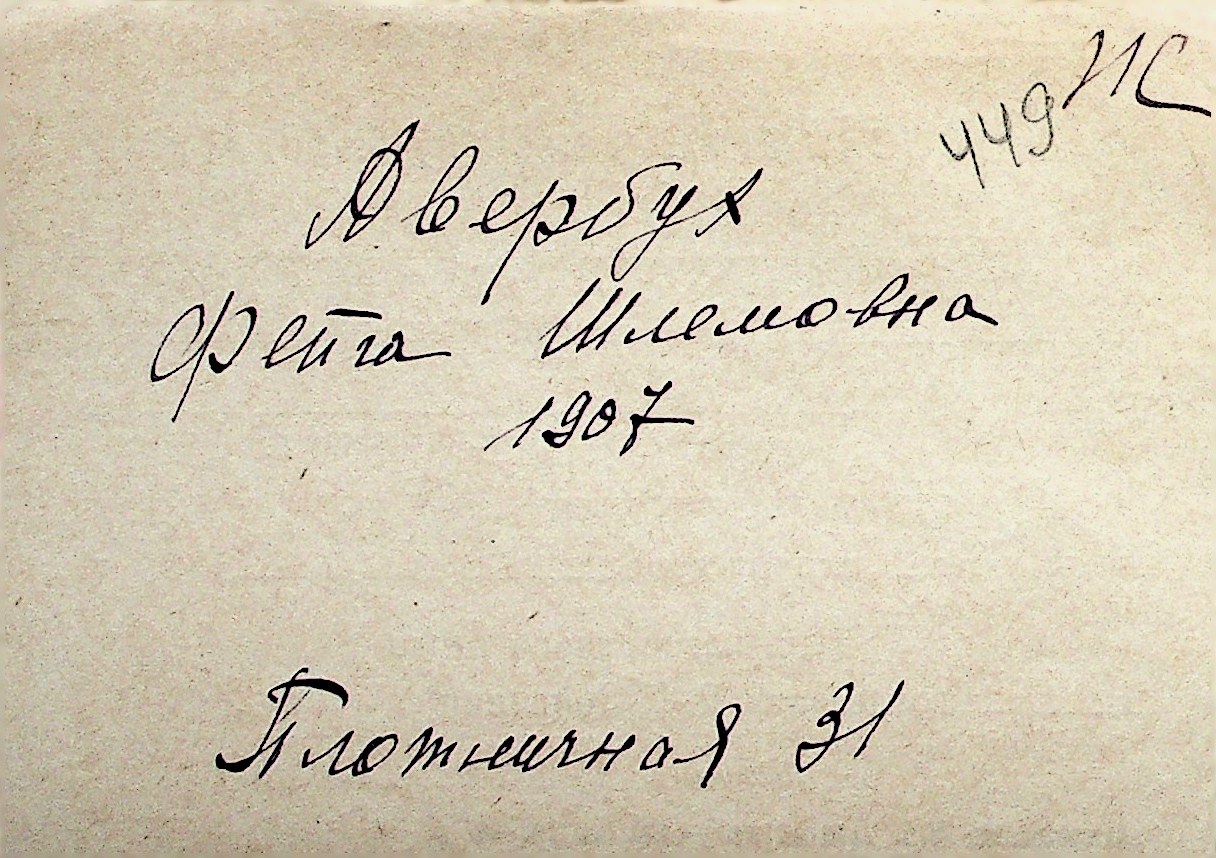 449 ИС
Авербух
Фейга Шлемовна
1907
Плотничная 31